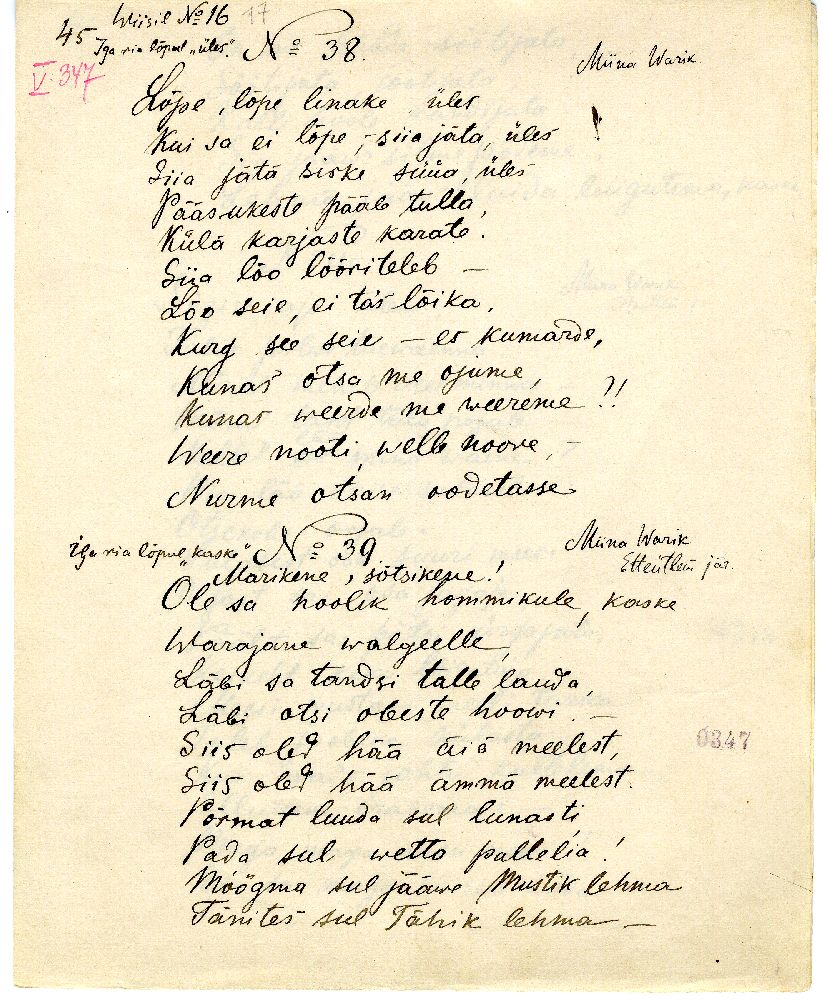 Wiisil № 16 17
45 Iga ria lõpul „üles". № 38. Miina Warik.
V. 347
Lõpe, lõpe linake üles
Kui sa ei lõpe, - siia jäta, üles
Siia jätä siske süüa, üles
Pääsukeste pääle tulla,
Külä karjaste karate.
Siia lõo lõõriteleb —
Lõo seie, ei täs lõika,
Kurg see seie — es kumarde,
Kunas otsa me ojume,
Kunas weerde me weereme?!
Weere nooti, welle noore, -
Nurme otsan oodetasse
iga ria lõpul „kaske" № 39. Miina Warik
Marikene, sõtsikene! Etteütleja jär.
Ole sa hoolik hommikule, kaske
Warajane walgeelle,
Läbi sa tandsi talle lauda,
Läbi otsi obeste hoowi. —
Siis oled hää äiä meelest,
Siis oled hää ämmä meelest.
Põrmat luuda sul lunasti,
Pada sul wetta pallelia!
Möögma sul jääwe Mustik lehma
Tänites sul Tähik lehma —
0347